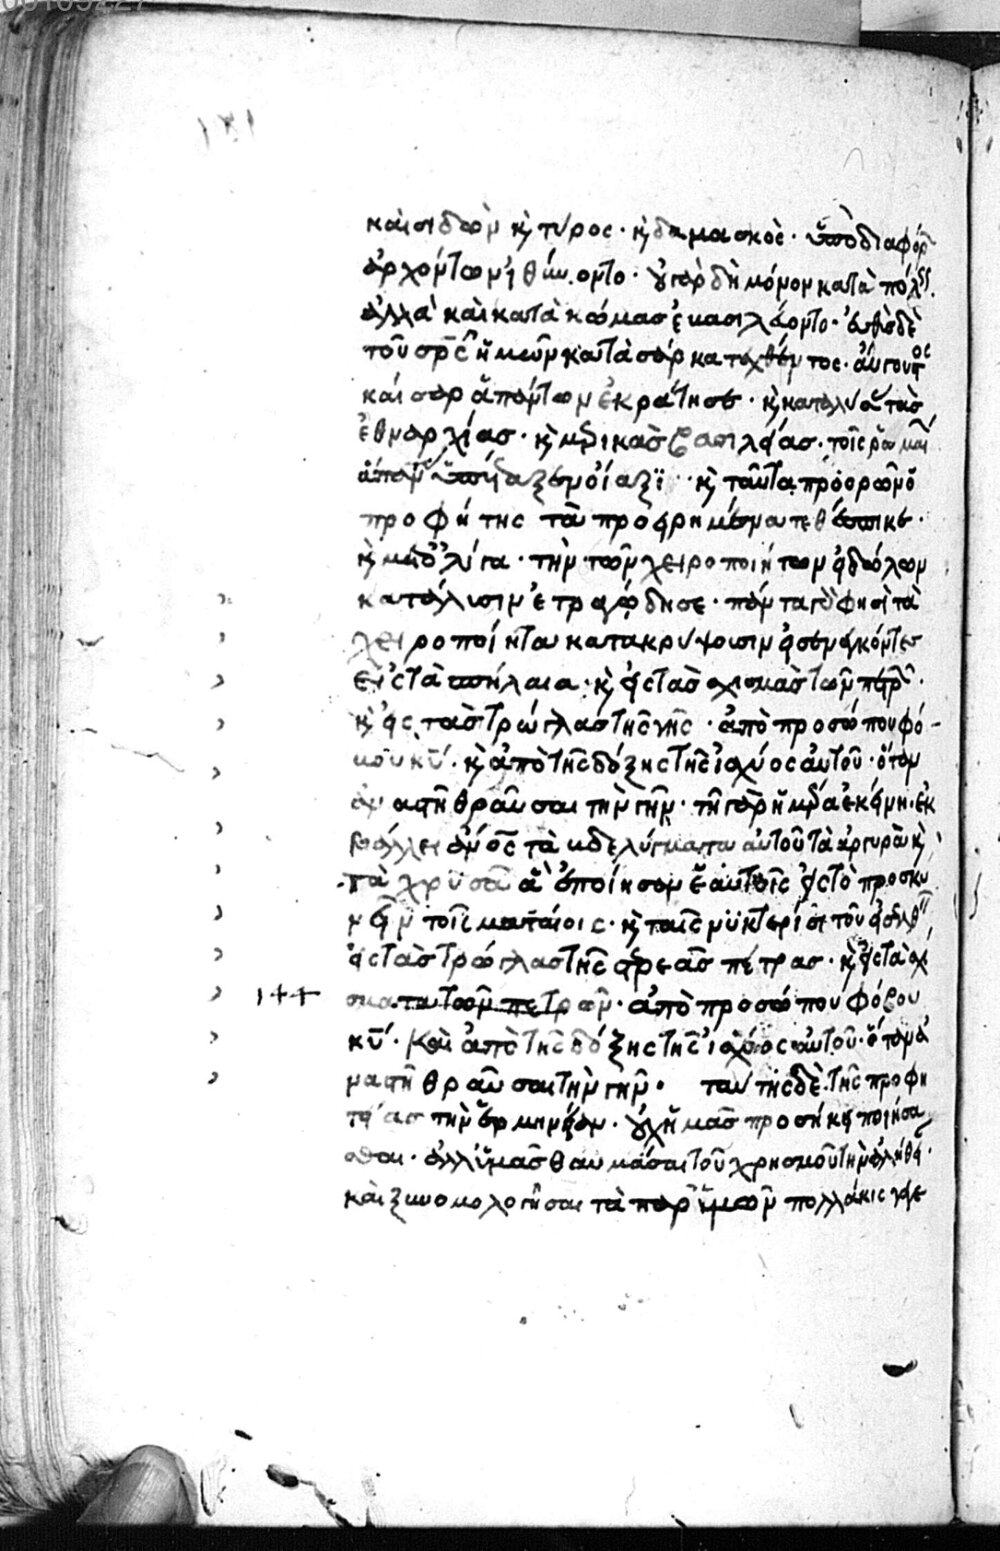 καὶ σιδὼν κ τύρος · κ δαμασκὸς · ὑπὸ διαφόρ
ἀρχόντων ἰθύνοντο · οὐ γὰρ δὴ μόνον κατὰ πόλεις
ἀλλὰ καὶ κατὰ κώμας ἐβασιλεύοντο · εὐθὺς δὲ
τοῦ σρς ἡμῶν κατὰ σάρκα τεχθέντος · αὔγουστος
καίσαρ ἁπάντων ἐκράτησε · κ κατέλυσε τὰς
ἐθναρχίας · κ μερικὰς βασιλείας · τοῖς ῥωμαι
κ ταῦτα προορῶν ὁ
προφήτης τὰ προειρημένα τεθέσπικε ·
κ μετ ὀλίγα · τὴν τῶν χειροποιήτων εἰδώλων
κατάλυσιν ἐτραγώδησε · πάντα γάρ φησι τὰ
χειροποίητα κατακρύψουσιν εἰσενέγκαντες
εἰς τὰ σπήλαια · κ εἰς τὰς σχισμὰς τῶν πετρῶν ·
κ εἰς τὰς τρώγλας τῆς γῆς · ἀπὸ προσώπου φό
βου κυ · κ ἀπὸ τῆς δόξης τῆς ἰσχύος αὐτοῦ · ὅταν
ἀναστῆ θραῦσαι τὴν γῆν · τῆ γὰρ ἡμέρα ἐκείνη ἐκ
βάλλει ἀνος τὰ βδελύγματα αὐτοῦ τὰ ἀργυρᾶ κ
τὰ χρυσᾶ ἃ ἐποίησαν ἑαυτοῖς εἰς τὸ προσκυ
νεῖν τοῖς ματαίοις · κ ταῖς νυκτερίσι τοῦ εἰσελθεῖν
εἰς τὰς τρώγλας τῆς στερεᾶς πέτρας · κ εἰς τὰ σχί
σματα τῶν πετρῶν · ἀπὸ προσώπου φόβου
κυ · καὶ ἀπὸ τῆς δόξης τῆς ἰσχύος αὐτοῦ · ὅταν ἀ
ναστῆ θραῦσαι τὴν γῆν · ταύτης δὲ τῆς προφη
τείας τὴν ἑρμηνείαν · οὐχ ἡμᾶς προσήκει ποιήσα
σθαι · ἀλλ ὑμᾶς θαυμάσαι τοῦ χρησμοῦ τὴν ἀλήθει
καὶ ξυνομολογῆσαι τὰ παρ ὑμῶν πολλάκις γε